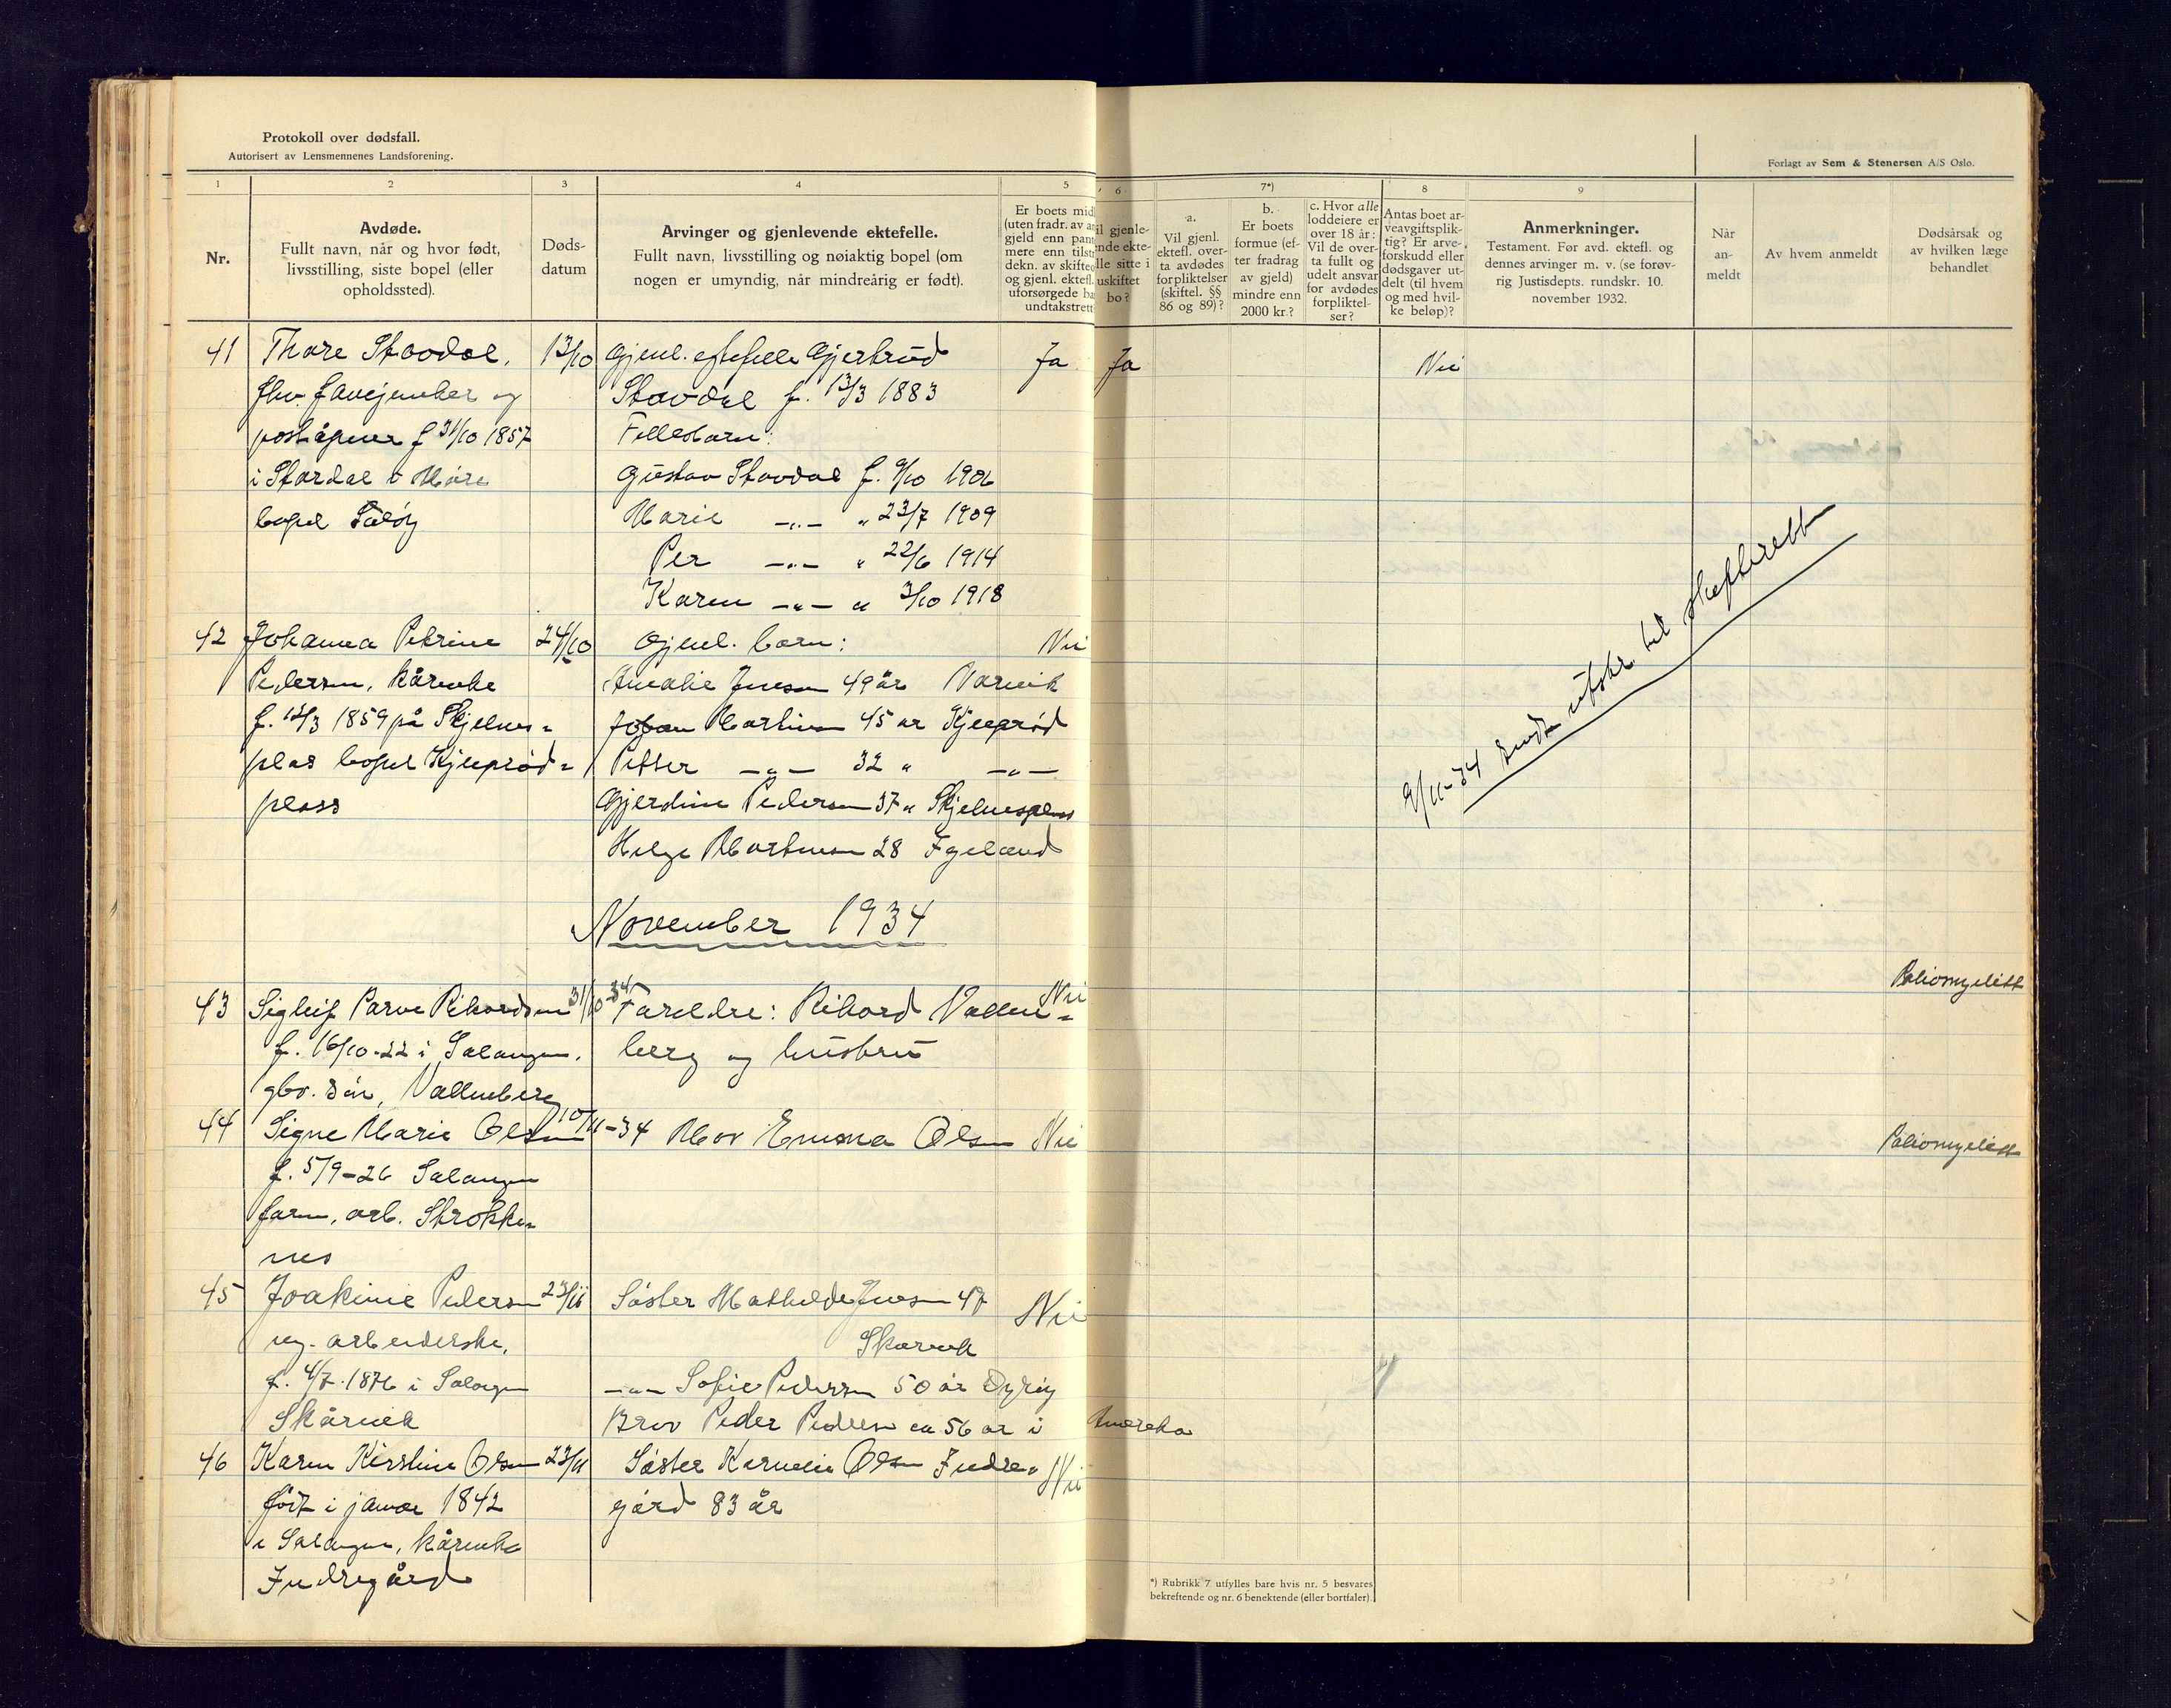 Protokoll over dødsfall.
Autorisert av Lensmennenes Landsforening.
Forlagt av Sem & Stenersen A/S Oslo.
1
2
3
4
5
6
7*)
8
9
Nr.
Avdøde.
Fullt navn, når og hvor født,
livsstilling, siste bopel (eller
opholdssted).
Døds-
datum
Arvinger og gjenlevende ektefelle.
Fullt navn, livsstilling og nøiaktig bopel (om
nogen er umyndig, når mindreårig er født).
Er boets mid
(uten fradr. av a
gjeld enn pan
mere enn tilst
dekn. av skifte
og gjenl. ektefl.
uforsørgede ba
undtakstrett
il gjenle-
nde ekte-
lle sitte i
uskiftet
bo?
a.
Vil gjenl.
ektefl. over-
ta avdødes
forpliktelser
(skiftel. §§
86 og 89)?
b.
Er boets
formue (ef-
ter fradrag
av gjeld)
mindre enn
2000 kr.?
c. Hvor alle
loddeiere er
over 18 år:
Vil de over-
ta fullt og
udelt ansvar
for avdødes
forpliktel-
ser?
Antas boet ar-
veavgiftsplik-
tig? Er arve-
forskudd eller
dødsgaver ut-
delt (til hvem
og med hvil-
ke beløp)?
Anmerkninger.
Testament. Før avd. ektefl. og
dennes arvinger m. v. (se forøv-
rig Justisdepts. rundskr. 10.
november 1932.
Når
an-
meldt
Av hvem anmeldt
Dødsårsak og
av hvilken læge
behandlet
41 Thore Stavdal, 13/10 Gjenl. ektefelle Gjertrud Ja Ja Nei
fhv. og Stavdal f. 13/3 1883
poståpner f 31/10 1857 Fellesbarn:
i Stordal i Møre Gustav Stavdal f. 9/10 1906
bopel Marie -„- „ 23/7 1909
Per -„- „ 22/6 1914
Karen -„- „ 3/10 1918
42 Johanna Petrine 24/10 Gjenl. barn: Nei
Pedersen, kårenke Amalie Jensen 49 år
f. 13/3 1859 på Skjelnes= Johan Martinsen 45 år Kjeprød
plas bopel Kjeprød= Petter -„- 32 „ -„-
plass Gjerdine Pedersen 37 „ Skjelnesplass
Helge Martinsen 28
9/11-34 sendt utskr. til skifterett
November 1934
43 Sigleif Parve Rikardsen 31/10-34 Foreldre: Rikard Vallen= Nei Poliomyelitt
f. 16/10-22 i Salangen, berg og hustru
gbr. søn, Vallenberg
44 Signe Marie Olsen 10/11-34 Mor Emma Olsen Nei Poliomyelitt
f. 5/9-26 Salangen
farm, arb. Strokke=
nes
45 Joakime Pedersen 23/11 Søster Mathilde Jensen 47 Nei
ug. arbeiderske, Skarvik
f. 4/7-1876 i Salangen -„- Sofie Pedersen 50 år Dyrøy
Skårvik Bror Peder Pedersen ca 56 år i Amerika
46 Karen Kirstine Olsen 23/11 Søster Kornelie Olsen Indre= Nei
født i januar 1842 gård 83 år
i Salangen, kårenke
Indregård
*) Rubrikk 7 utfylles bare hvis nr. 5 besvares
bekreftende og nr. 6 benektende (eller bortfaler).